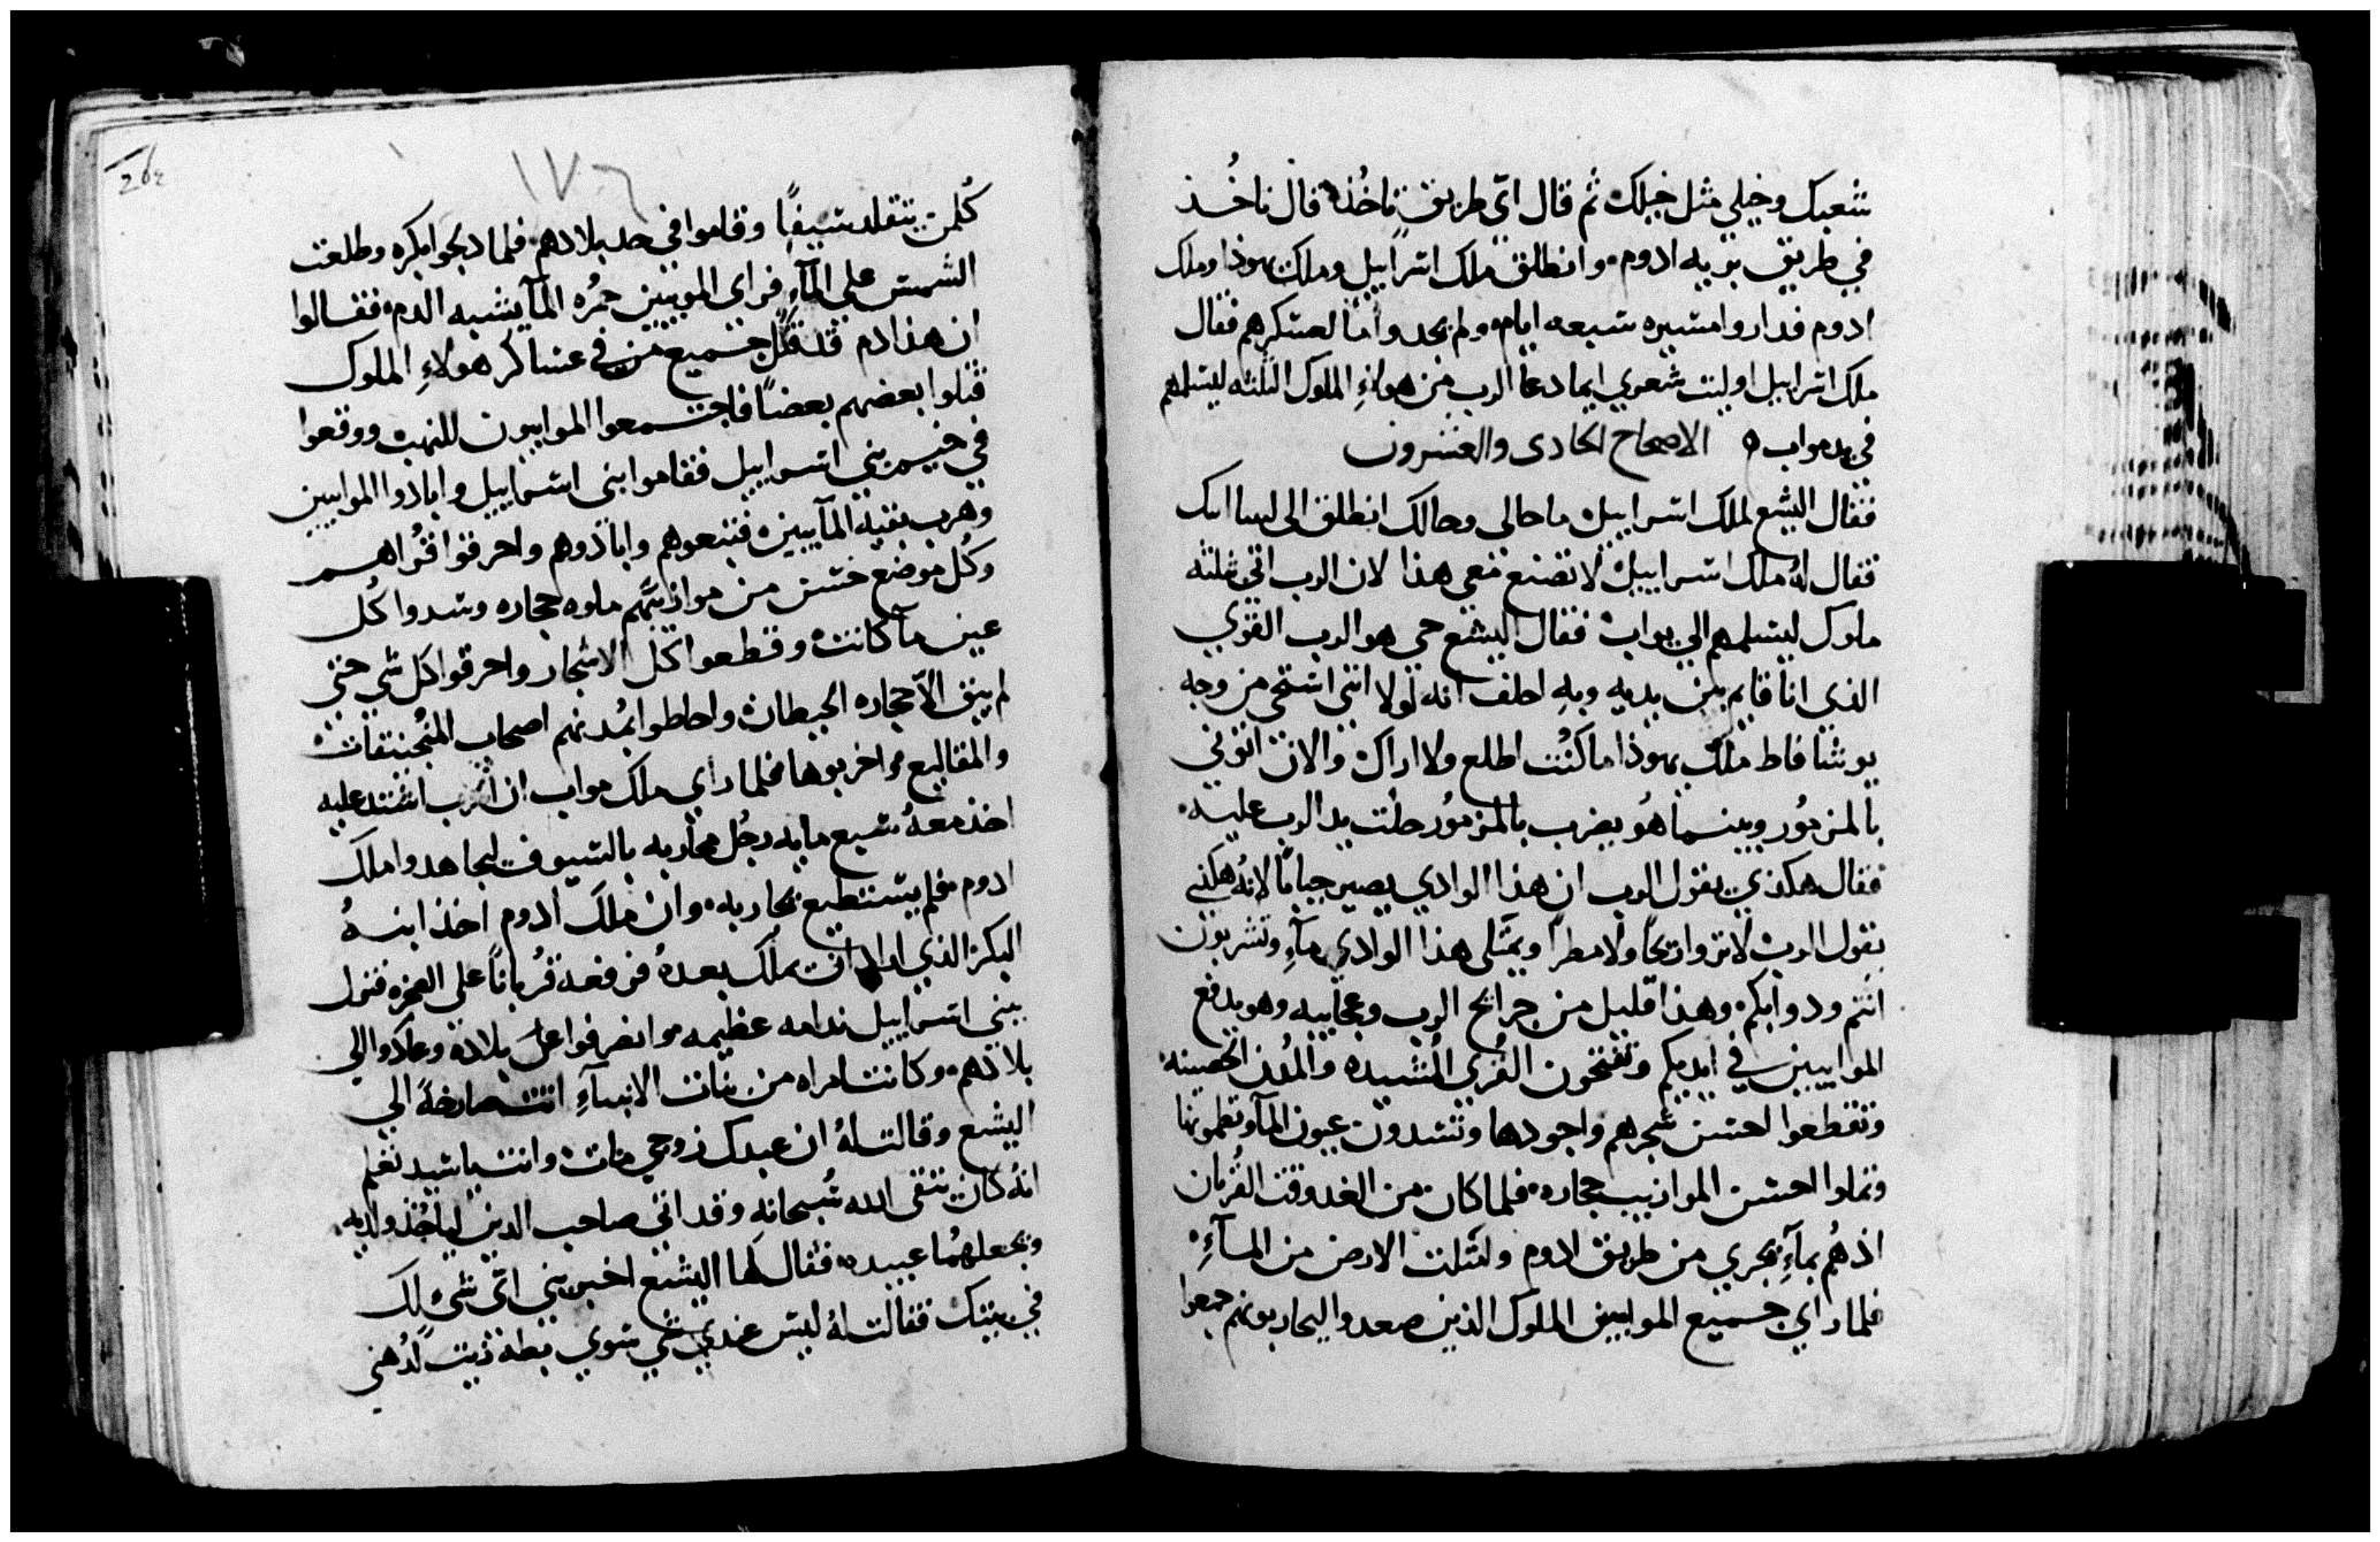 شعبك وخيلي مثل خيلك ثم قال اي طريق ناخذه قال ناخذ
في طريق بريه ادوم وانطلق ملك اسراييل وملك يهوذا وملك
ادوم فداروا مسيره سبعه ايام ولم يجدوا مآ لعسكرهم فقال
ملك اسراييل اوليت شعري ايما دعا الرب من هولاءِ الملوك الثلثه ليسلمهم
في يد مواب ه الاصحاح الحادى والعشرون
فقال اليشع لملك اسراييل ما حالى وحالك انطلق الى
فقال لهُ ملك اسراييل لا تصنع معى هذا لان الرب اتي بثلثه
ملوك ليسلمهم الي يواب فقال اليشع حى هو الرب القوي
الذي انا قايم بين يديه وبهِ احلف انه لولا انني استحي من وجه
يوشافاط ملك يهوذا ما كنُت اطلع ولا اراك والان اتوني
بالمزمُور وبينما هُو يضرب بالمزمُور حلت يد الرب عليه
فقال هكذي يقول الرب ان هذا الوادي يصير جباباً لانهُ هكذي
يقول الرب لا تروا ريحاً ولا مطراً ويمتلى هذا الوادي مآءِ وتشربون
انتم ودوابكم وهذا قليل من جرايح الرب وعجايبه وهو يدفع
الموابيين في ايديكم وتفتحون القُري المُشيده والمُدن الحصينه
وتقطعوا احسن شجرهم واجودها وتسدون عيون المآ وتطمونها
وتملوا احسن المواذيب حجاره فلما كان من الغد وقت القُربان
اذ هُم بمآءِ يجري من طريق ادوم وامتلت الارض من المآءِ
فلما راي جميع الموابيين الملوك الذين صعدوا ليحاربونهم جمعوا
١٧٦
262
كُلمن يتقلد سيفاً وقاموا في حد بلادهم فلما دلجوا بكره وطلعت
الشمس علي المآءِ فراى الموبيين حمُره المآ يشبه الدم فقالوا
ان هذا دم قد قتل جميع من في عساكر هولاءِ الملوك
قتلوا بعضهم بعضاً فاجتمعوا الموابيون للنهب ووقعوا
في خيم بني اسراييل فقاموا بنى اسراييل وابادوا الموابيين
وهرب بقيه المآبيين فتبعوهم وابادوهم واحرقوا قُراهم
وكُل موضع حسن من مواذيبهم ملوه حجاره وسدوا كُل
عين مآ كانت وقطعوا كل الاشجار واحرقوا كل شي حتى
لم يبق الاّ حجاره الحيطان واحاطوا بمُدنهم اصحاب المنُجنيقات
والمقاليع واخربوها فلما راي ملك مواب ان الحرب اشتد عليه
اخذ معهُ سبع مايه رجُل محاربه بالسيوف ليجاهدوا ملك
ادوم فلم يستطيع يحاربه وان ملك ادوم اخذ ابنهُ
البكر الذي اراد ان يملك بعدهُ فرفعه قُرباناً على الصخره فنزل
ببني اسراييل ندامه عظيمه وانصرفوا عن بلاده وعادوا الي
بلادهم وكانت امراه من بنات الانبيآءِ اتت صارخةً الي
اليشع وقالت لهُ ان عبدك زوجي مات وانت يا سيد تعلم
انهُ كان يتقى الله سُبحانه وقد اتى صاحب الدين لياخُذ ولديه
ويجعلهُما عبيده فقال لها اليشع اخبريني اىّ شىء لك
في بيتك فقالت لهُ ليس عندي شي سوي بطه زيت لدُهنى